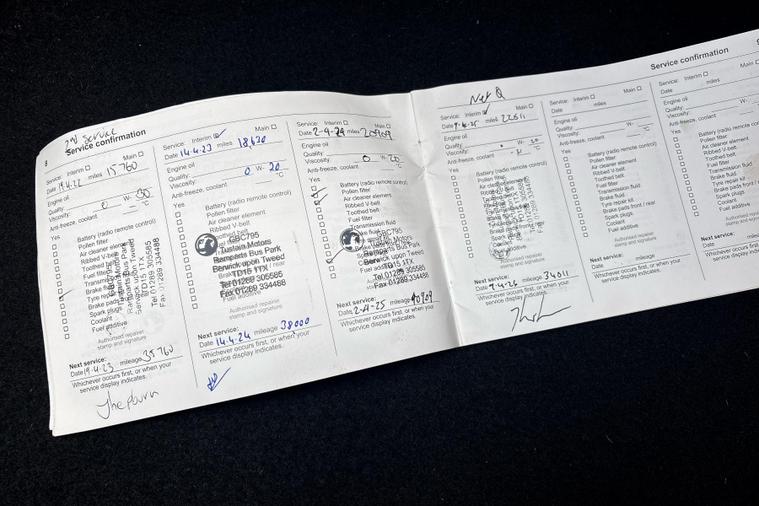 8
2nd Service
Service confirmation
Service: Interim Main
Date 19.4.22 miles 15760
Engine oil
Quality:
Viscosity: 0 W- 30
Anti-freeze, coolant °C
Yes
Battery (radio remote control)
Pollen filter
Air cleaner element
Ribbed V-belt
Toothed belt
Fuel filter
Spark plugs
Coolant
Fuel additive
GBC795
Tustain Motors
Ramparts Bus Park
Berwick upon Tweed
TD15 1TX
Tel 01289 305585
Fax 01289 334488
Authorised repairer
stamp and signature
Next service:
Date 19.4.23 mileage 35760
Whichever occurs first, or when your
service display indicates.
Service: Interim Main
Date 14.4.23 miles 18,620
Engine oil
Quality:
Viscosity: 0 W- 20
Anti-freeze, coolant °C
Yes
Battery (radio remote control)
Pollen filter
Air cleaner element
Ribbed V-belt
GBC795
Tustain Motors
Ramparts Bus Park
Berwick upon Tweed
TD15 1TX
Tel 01289 305585
Fax 01289 334488
Fuel additive
Authorised repairer
stamp and signature
Next service:
Date 14.4.24 mileage 38000
Whichever occurs first, or when your
service display indicates.
Service: Interim Main
Date 2-4-24 miles
Engine oil
Quality:
Viscosity: 0 W- 20
Anti-freeze, coolant °C
Yes
Battery (radio remote control)
Pollen filter
Air cleaner element
Ribbed V-belt
Toothed belt
Fuel filter
Transmission fluid
GBC795
Motors
Ramparts Bus Park
Tweed
TD15 1TX
Tel 01289 305585
Fax 01289 334488
Authorised repairer
stamp and signature
Next service:
mileage
Whichever occurs first, or when your
service display indicates.
Service: Interim Main
miles 22611
Engine oil
Quality:
Viscosity: W- 30
Anti-freeze, coolant
Yes
Battery (radio remote control)
Pollen filter
Air cleaner element
Ribbed V-belt
Authorised repairer
stamp and signature
Next service:
Date 9-4-26 mileage 34011
Whichever occurs first, or when your
service display indicates.
Service confirmation
Service: Interim Main
Date miles
Engine oil
Quality:
Viscosity: W-
Anti-freeze, coolant °C
Yes
Battery (radio remote control)
Pollen filter
Air cleaner element
Ribbed V-belt
Toothed belt
Fuel filter
Transmission fluid
Brake fluid
Tyre repair kit
Brake pads front / rear
Spark plugs
Coolant
Fuel additive
Authorised repairer
stamp and signature
Next service:
Date mileage
Whichever occurs first, or when your
service display indicates.
Service: Interim Main
Date miles
Engine oil
Quality:
Viscosity: W-
Anti-freeze, coolant °C
Yes
Battery (radio remote control)
Pollen filter
Air cleaner element
Ribbed V-belt
Toothed belt
Fuel filter
Transmission fluid
Brake fluid
Tyre repair kit
Brake pads front / rear
Spark plugs
Coolant
Fuel additive
Authorised repairer
stamp and signature
Next service:
Date mileage
Whichever occurs first, or when
service display indicates.